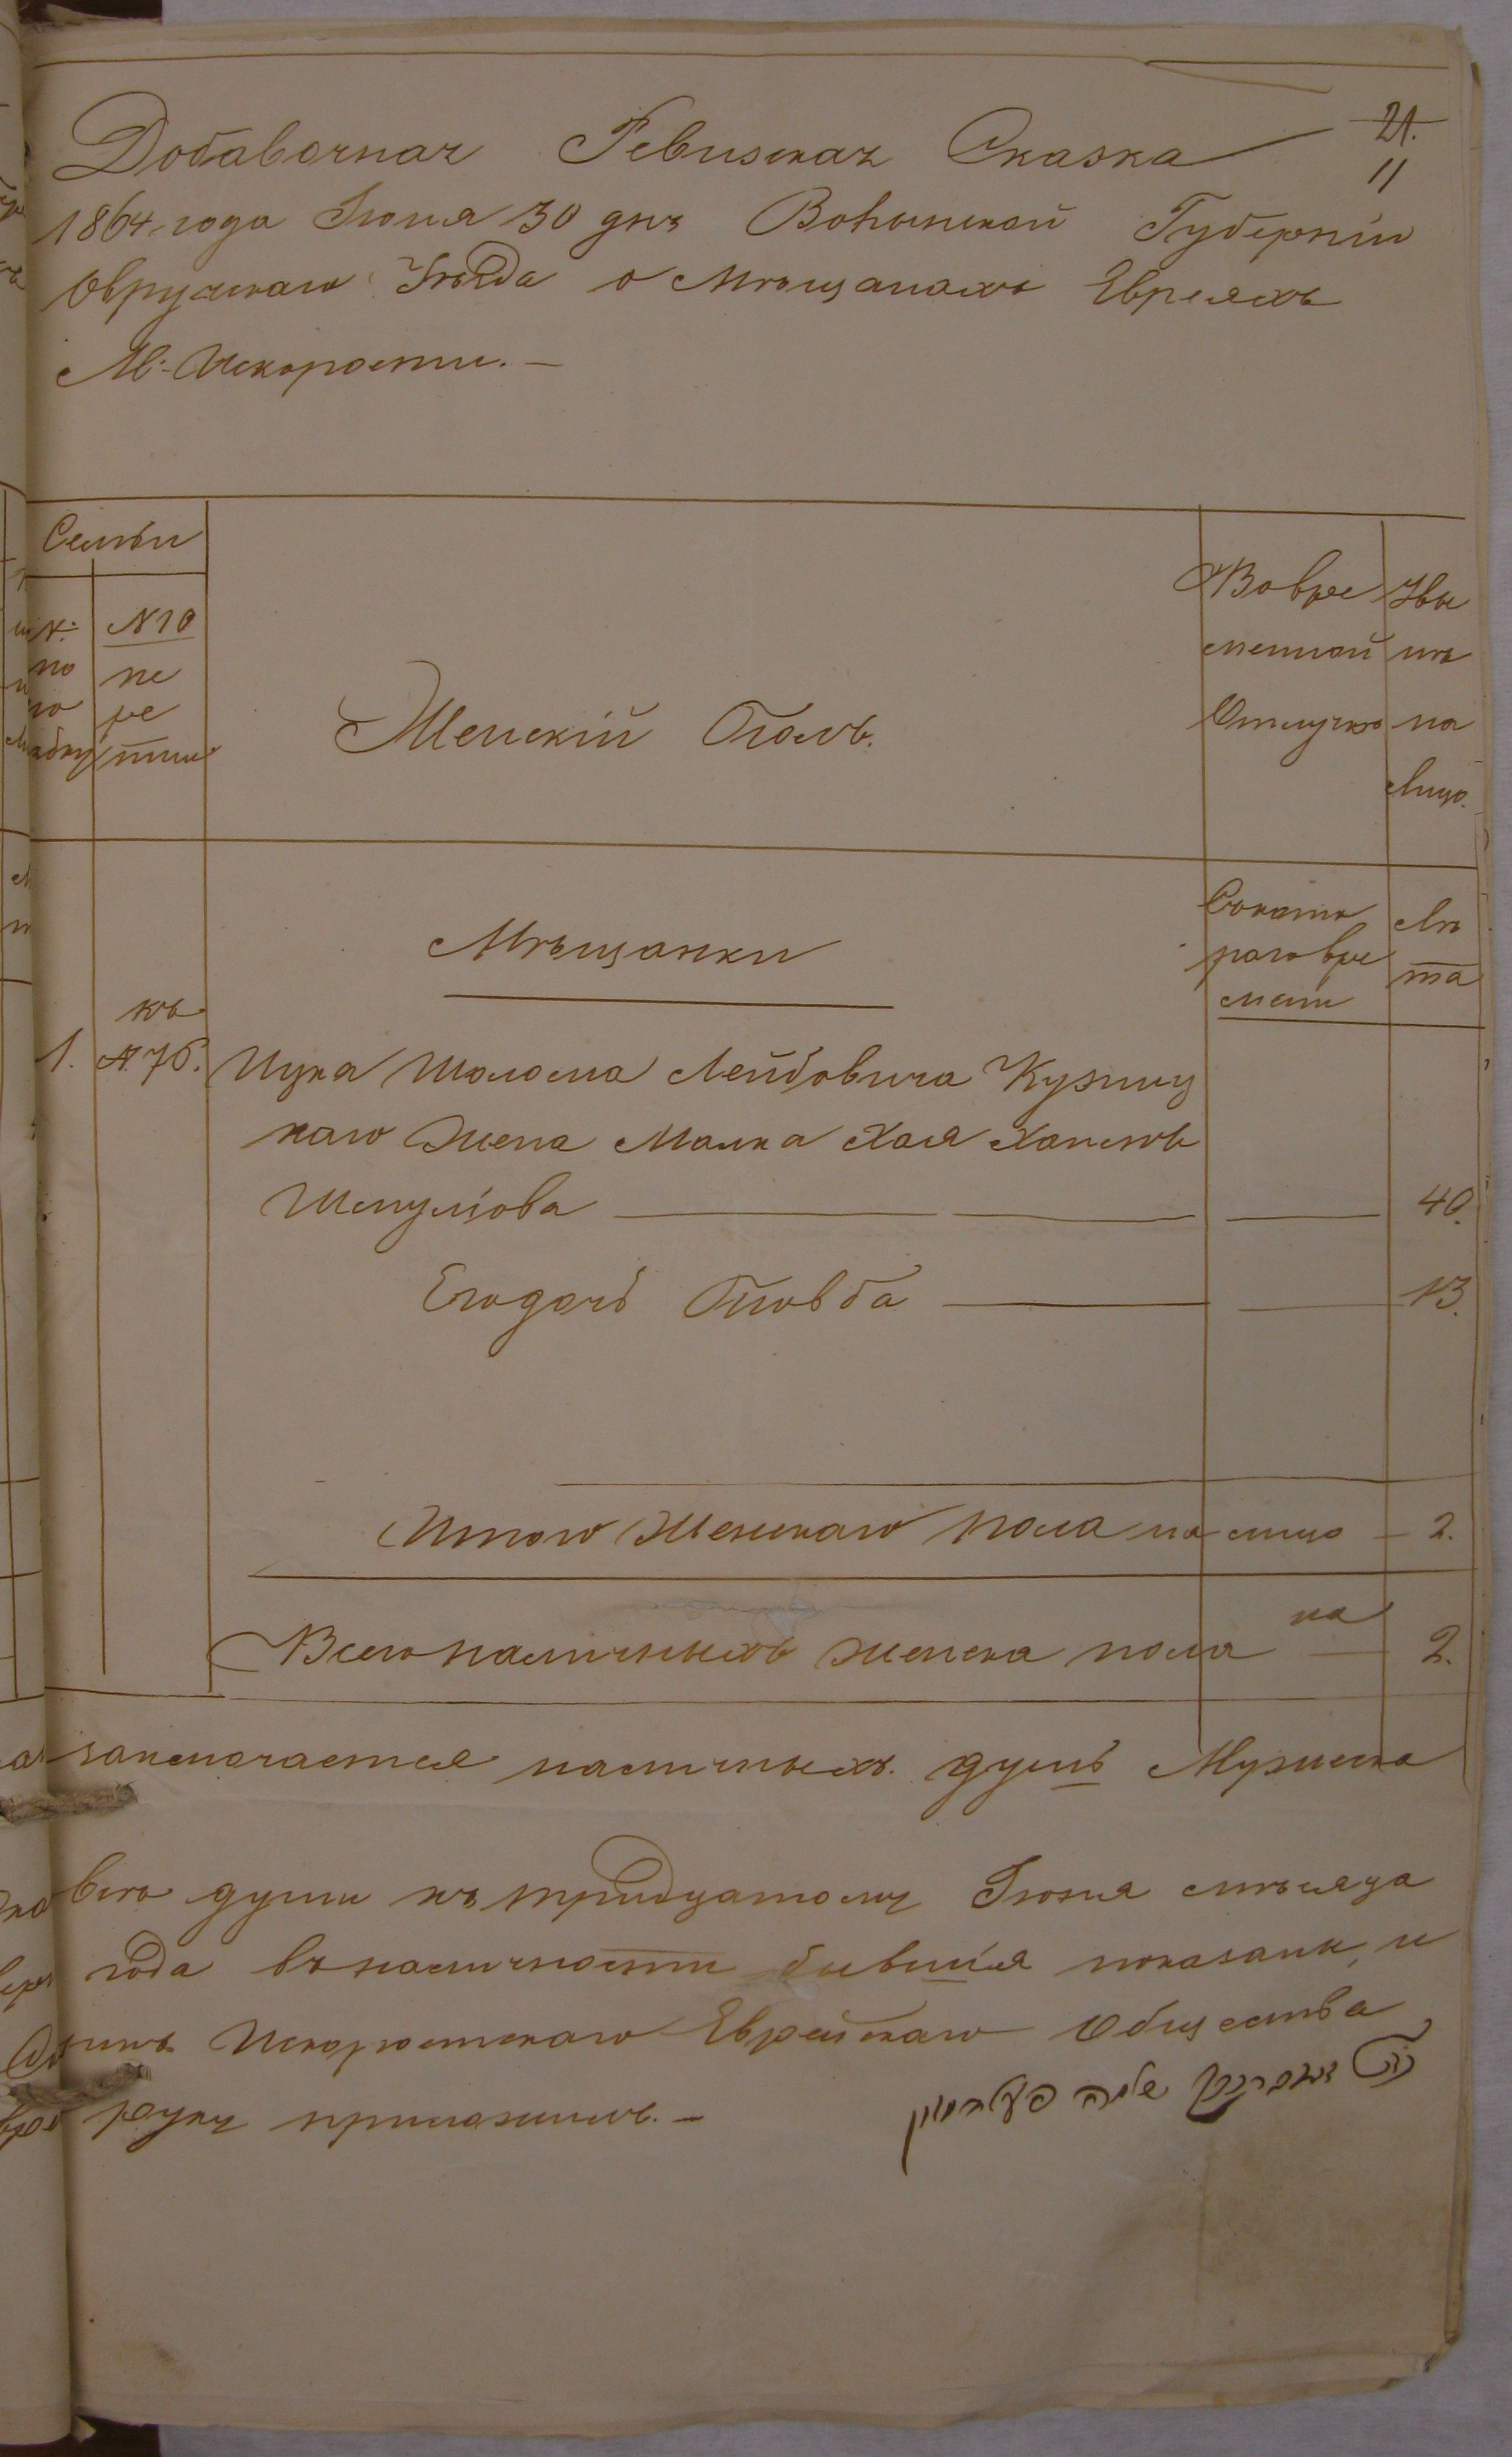 21.
11
Добавочная Ревизская Сказка
1864 года Июня 30 дня Волынской Губерніи
Овручскаго Уѣзда о Мѣщанахъ Евреяхъ
М: Искорости. —
Семьи
№ по по рядку
№ 10 пе ре писи
Женскій Полъ.
Во вре менной Отлучкѣ
Увы мѣ на Лицо.
Мѣщанки
Съ кото раго вре мени
Лѣ та
къ
1. №. 76. Ицка Шолома Лейбовича Кузниц
каго Жена Малка Хая Хаимовъ
Шмуліова — — — 40.
Его дочь Товба — — 13.
Итого Женскаго пола на лицо — 2.
на
Всего наличныхъ женска пола — 2.
заключается наличныхъ. душъ Мужеска
всего души къ тридцатому Іюня мѣсяца
года въ наличности бывшія показаны, и
Искоростскаго Еврейскаго Общества
руку приложилъ. —
שלמה